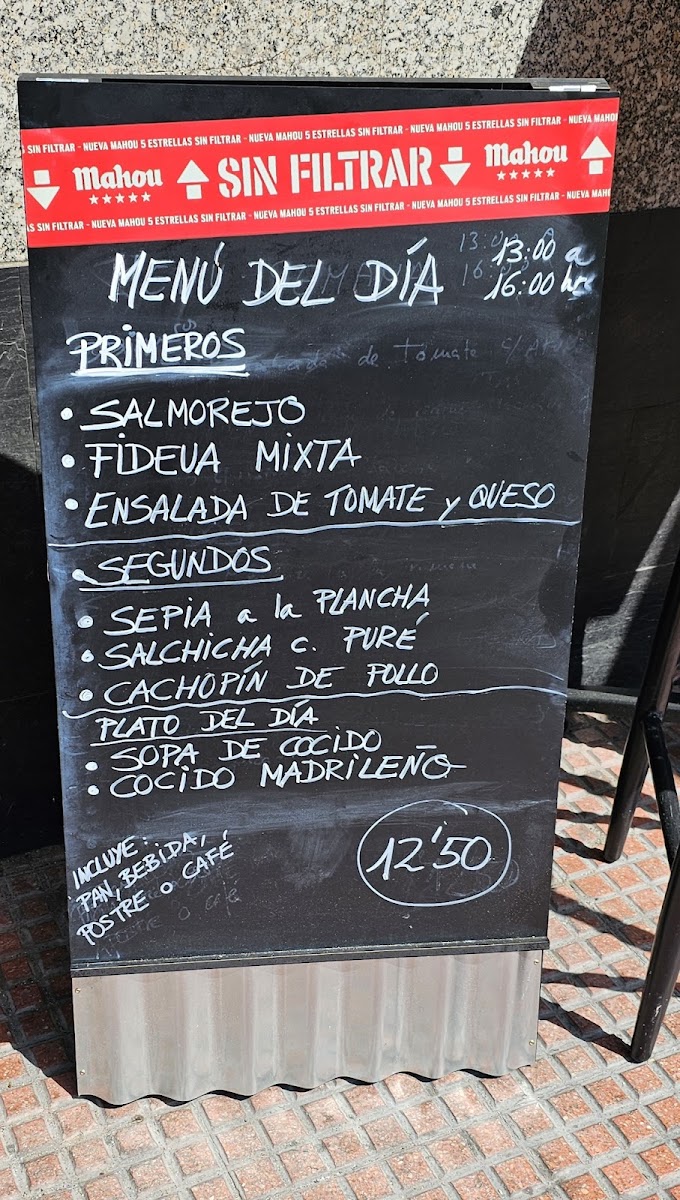 SIN FILTRAR - NUEVA MAHOU 5 ESTRELLAS SIN FILTRAR - NUEVA MAHOU 5 ESTRELLAS SIN FILTRAR - NUEVA MAHOU 5 ESTRELLAS SIN FILTRAR - NUEVA MAHOU
Mahou SIN FILTRAR Mahou
SIN FILTRAR - NUEVA MAHOU 5 ESTRELLAS SIN FILTRAR - NUEVA MAHOU 5 ESTRELLAS SIN FILTRAR - NUEVA MAHOU 5 ESTRELLAS SIN FILTRAR - NUEVA MAH
MENÚ DEL DÍA
13:00 a
16:00 hrs
PRIMEROS
• SALMOREJO
• FIDEUA MIXTA
• ENSALADA DE TOMATE y QUESO
• SEGUNDOS
• SEPIA a la PLANCHA
• SALCHICHA C. PURÉ
• CACHOPÍN DE POLLO
PLATO DEL DÍA
• SOPA DE COCIDO
• COCIDO MADRILEÑO
INCLUYE:
PAN, BEBIDA,
POSTRE O CAFÉ
12'50